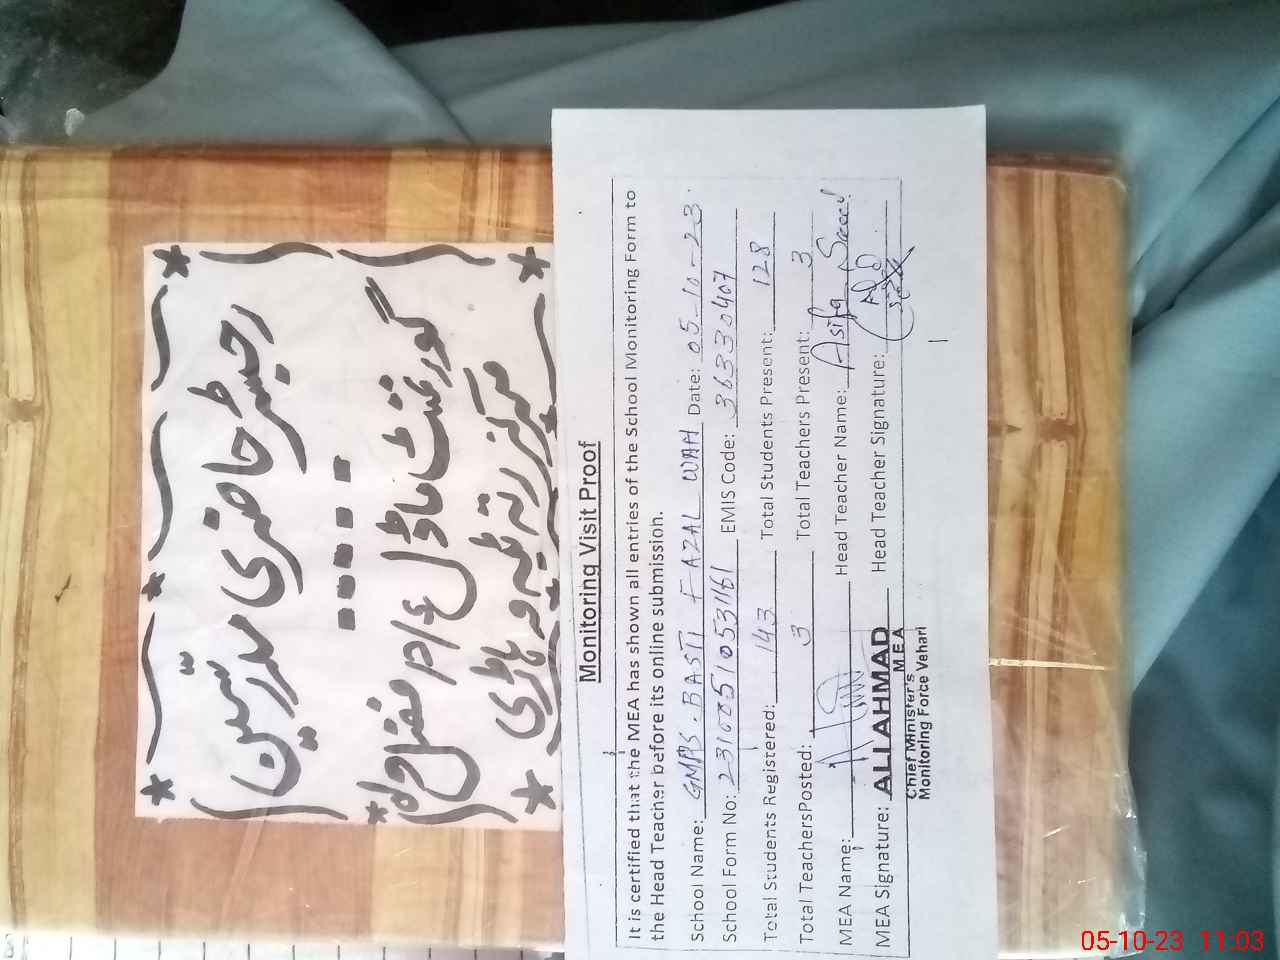 رجسٹر حاضری مدرسین
گورنمنٹ ماڈل
فضل واہ
مرکز رتہ ٹبہ وہاڑی
Monitoring Visit Proof
It is certified that the MEA has shown all entries of the School Monitoring Form to
the Head Teacher before its online submission.
School Name: GMPS. BASTI FAZAL WAH Date: 05-10-23.
School Form No: 23100510531161 EMIS Code: 36330407
Total Students Registered: 143 Total Students Present: 128
Total TeachersPosted: 3 Total Teachers Present: 3
MEA Name: Head Teacher Name: Asifa
MEA Signature: ALI AHMAD Head Teacher Signature:
MEA
Chief Minister's
Monitoring Force Vehari
05-10-23 11:03